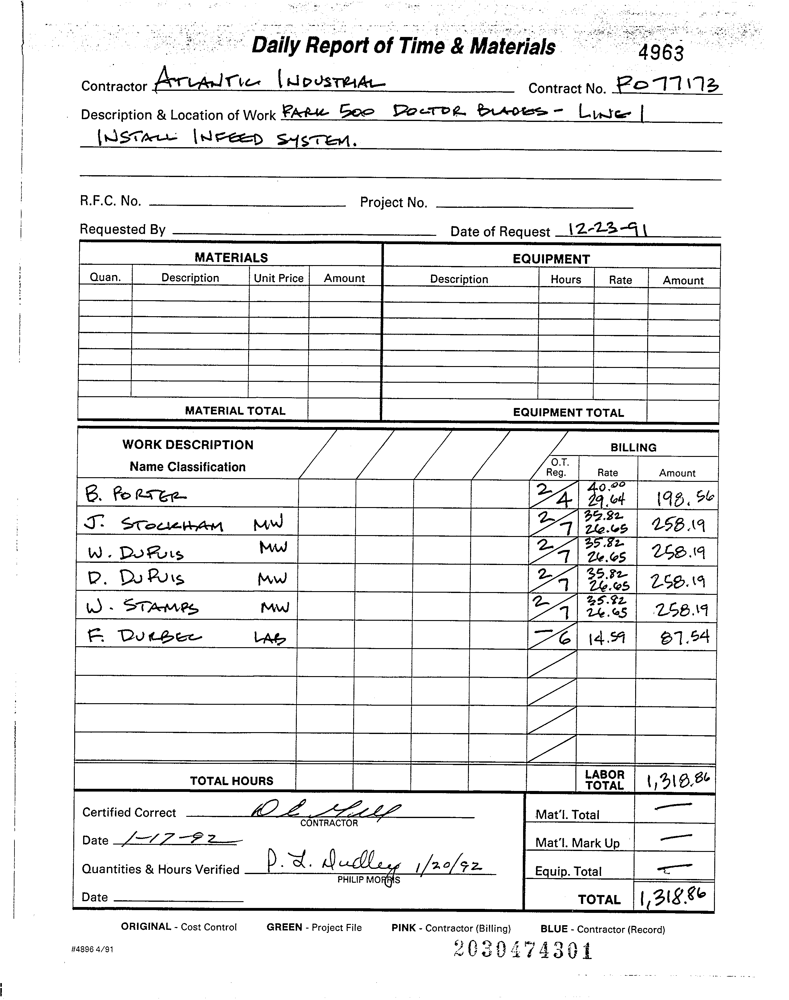 Daily Report of Time & Materials
4963
Contractor ATLANTIC INDUSTRIAL Contract No. PO77173
Description & Location of Work PARK 500 DOCTOR BLADES - LINE 1
INSTALL INFEED SYSTEM.
R.F.C. No. Project No.
Requested By Date of Request 12-23-91
MATERIALS EQUIPMENT
Quan. Description Unit Price Amount Description Hours Rate Amount
MATERIAL TOTAL EQUIPMENT TOTAL
WORK DESCRIPTION BILLING
Name Classification O.T. Reg. Rate Amount
B. PORTER 2/4 40.00 29.64 198.56
J. STOCKHAM MW 2/7 35.82 26.65 258.19
W. DUPUIS MW 2/7 35.82 26.65 258.19
D. DUPUIS MW 2/7 35.82 26.65 258.19
W. STAMPS MW 2/7 35.82 26.65 258.19
F. DURBEC LAB -/6 14.59 87.54
TOTAL HOURS LABOR TOTAL 1,318.86
Certified Correct Mat'l. Total —
CONTRACTOR
Date 1-17-92 Mat'l. Mark Up —
Quantities & Hours Verified P. L. Dudley 1/20/92 Equip. Total —
PHILIP MORRIS
Date TOTAL 1,318.86
ORIGINAL - Cost Control GREEN - Project File PINK - Contractor (Billing) BLUE - Contractor (Record)
#4896 4/91
2030474301